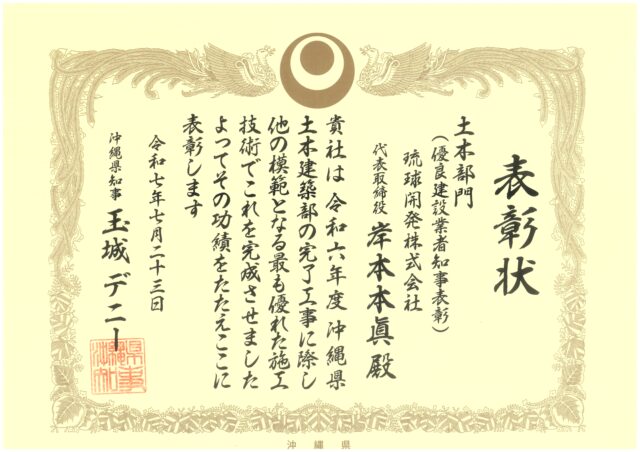 表彰状
土木部門
(優良建設業者知事表彰)
琉球開発株式会社
代表取締役 岸本本眞殿
貴社は令和六年度沖縄県
土木建築部の完了工事に際し
他の模範となる最も優れた施工
技術でこれを完成させました
よってその功績をたたえここに
表彰します
令和七年七月二十三日
沖縄県知事 玉城デニー
沖縄県